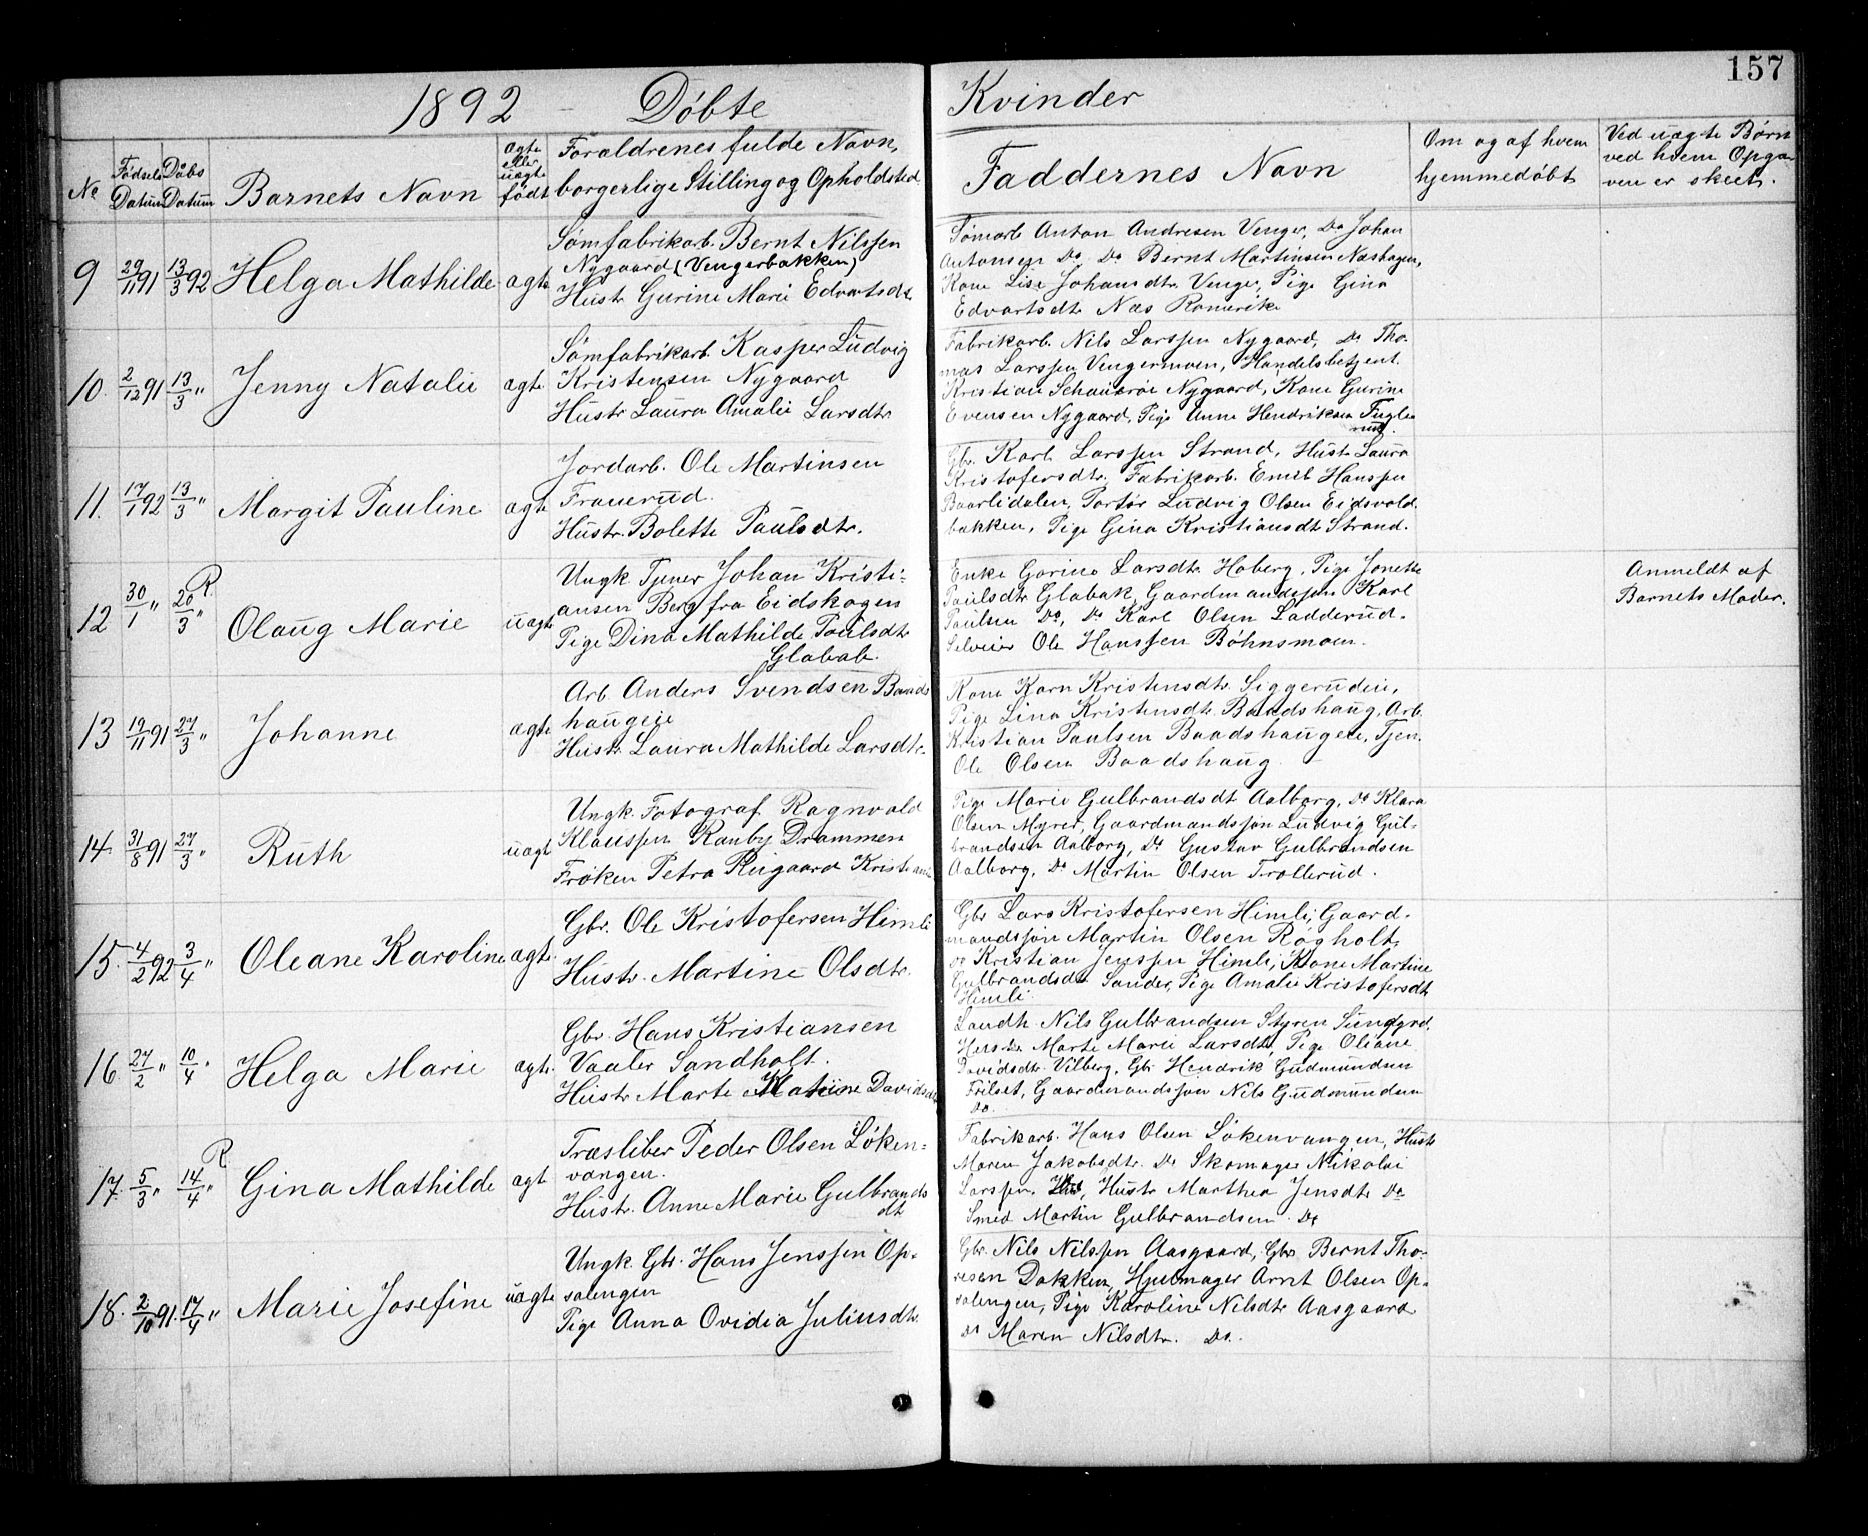 157
1892 Döbte Kvinder
No Födsels Datum Dåbs Datum Barnets Navn ægte eller uægte födt Forældrenes fulde Navn, borgerlige Stilling og Opholdsted Faddernes Navn Om og af hvem hjemmedöbt Ved uægte Börn ved hvem Opgaven er skeet.
9 29/11 91 13/3 92 Helga Mathilde ægte
Sömfabrikarb. Bernt Nilssen
Nygaard (Vengerbakken)
Hustr Gurine Marie Edvartsdt.
Sömarb Anton Andresen Venger, Do Johan
Antonsen Do, Do Bernt Martinsen Næshagen,
Kone Lise Johansdtr Venger, Pige Gina
Edvartsdtr Næs Romerike
10. 2/12 91 13/3 " Jenny Natalie ægte
Sömfabrikarb. Kasper Ludvig
Kristensen Nygaard
Hustr Laura Amalie Larsdtr
Fabrikarb. Nils Larssen Nygaard, Do Tho-
mas Larssen Vengermoen, Handelsbetjent
Kristian Nygaard, Kone Gurine
Evensen Nygaard, Pige Anne Hendriksen Fugle
rud.
11. 17/1 92 13/3 " Margit Pauline ægte
Jordarb. Ole Martinsen
Frauerud.
Hustr. Bolette Paulsdtr.
Gbr. Karl Larssen Strand, Hustr Laura
Kristofersdtr, Fabrikarb. Emil Hanssen
Baarlidalen, Portör Ludvig Olsen Eidsvold
bakken, Pige Gina Kristiansdt Strand.
12 30/1 " 20/3 " R. Olaug Marie uægte
Ungk. Tjener Johan Kristi-
ansen Berg fra Eidskogen
Pige Dina Mathilde Paulsdtr
Glabak.
Enke Gorine Larsdtr Hoberg, Pige Jonette
Paulsdtr Glabak, Gaardmandssön Karl
Paulsen Do, Do Karl Olsen Ladderud.
Selveier Ole Hanssen Böhnsmoen.
Anmeldt af
Barnets Moder.
13 19/11 91 27/3 " Johanne ægte
Arb. Anders Svendsen Baads
haugeie
Hustr Laura Mathilde Larsdtr.
Kone Karn Kristensdtr. Siggerudeie,
Pige Lina Kristensdtr. Baadshaug, Arb.
Kristian Paulsen Baadshaugeie, Tjen.
Ole Olsen Baadshaug
14. 31/8 91 27/3 " Ruth uægt
Ungk. Fotograf Ragnvald
Klaussen Ranby Drammen
Fröken Petra Ruigaard
Pige Marie Gulbrandsdt Aalborg, Do Klara
Olsen Myrer, Gaardmandssön Ludvig Gul-
brandsen Aalborg, Do Gustav Gulbrandsen
Aalborg, Do Martin Olsen Trollerud.
15. 4/2 92 3/4 " Oleane Karoline ægte.
Gbr. Ole Kristofersen Himli
Hustr. Martine Olsdtr.
Gbr Lars Kristofersen Himli, Gaard-
mandssön Martin Olsen Rögholt,
Do Kristian Jenssen Himli, Kone Martine
Gulbrandsdtr Sander, Pige Amalie Kristofersdt
Himli.
16 27/2 " 10/4 " Helga Marie ægte.
Gbr. Hans Kristiansen
Vaaler Sandholt.
Hustr Marte Davidsdt
Landh. Nils Gulbrandsen Styren Sundgrd.
Hustr Marte Marie Larsdtr, Pige Oleane
Davidsdtr Vilberg, Gbr Hendrik Gudmundsen
Frilset, Gaardmandssön Nils Gudmundsen
Do.
17. 5/3 " 14/4 " R. Gina Mathilde ægt
Træsliber Peder Olsen Löken-
vangen.
Hustr. Anne Marie Gulbrands
dt
Fabrikarb. Hans Olsen Lökenvangen, Hustr
Maren Jakobsdtr. Do Skomager Nikolai
Larssen, Hustr Marthea Jensdtr Do
Smed Martin Gulbrandsen. Do
18. 2/10 91. 17/4 " Marie Josefine uægte
Ungk. Gbr. Hans Jenssen Op-
salengen
Pige Anna Ovidia Juliusdtr.
Gbr. Nils Nilssen Aasgaard, Gbr Bernt Tho-
resen Dakken, Hjulmager Arnt Olsen Op-
salengen, Pige Karoline Nilsdtr Aasgaard
Do Maren Nilsdtr. Do.